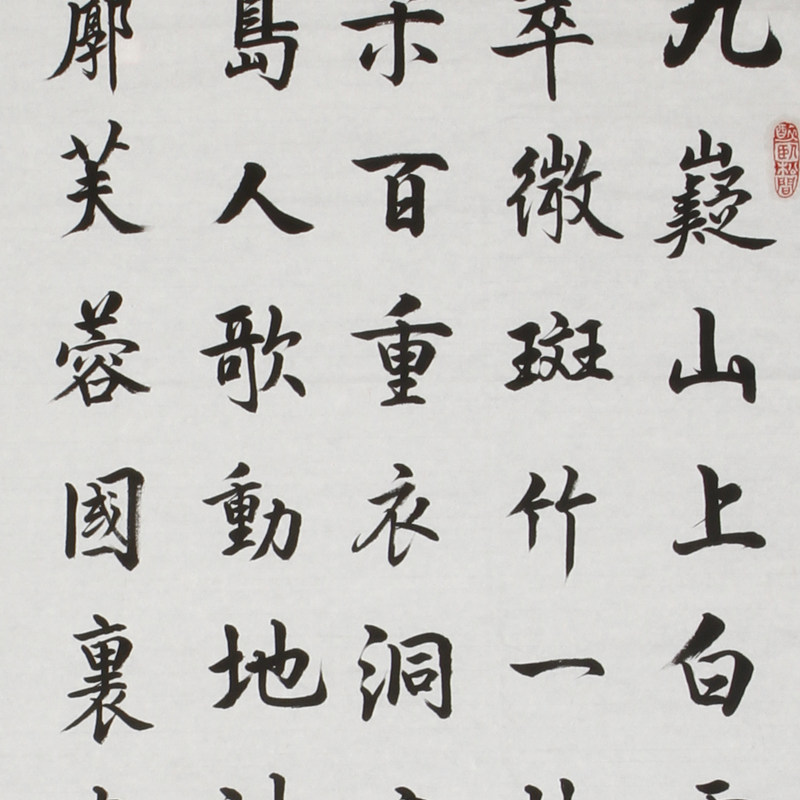 九嶷山上白
翠微斑竹一
朵百重衣洞
島人歌動地
廓芙蓉國裏